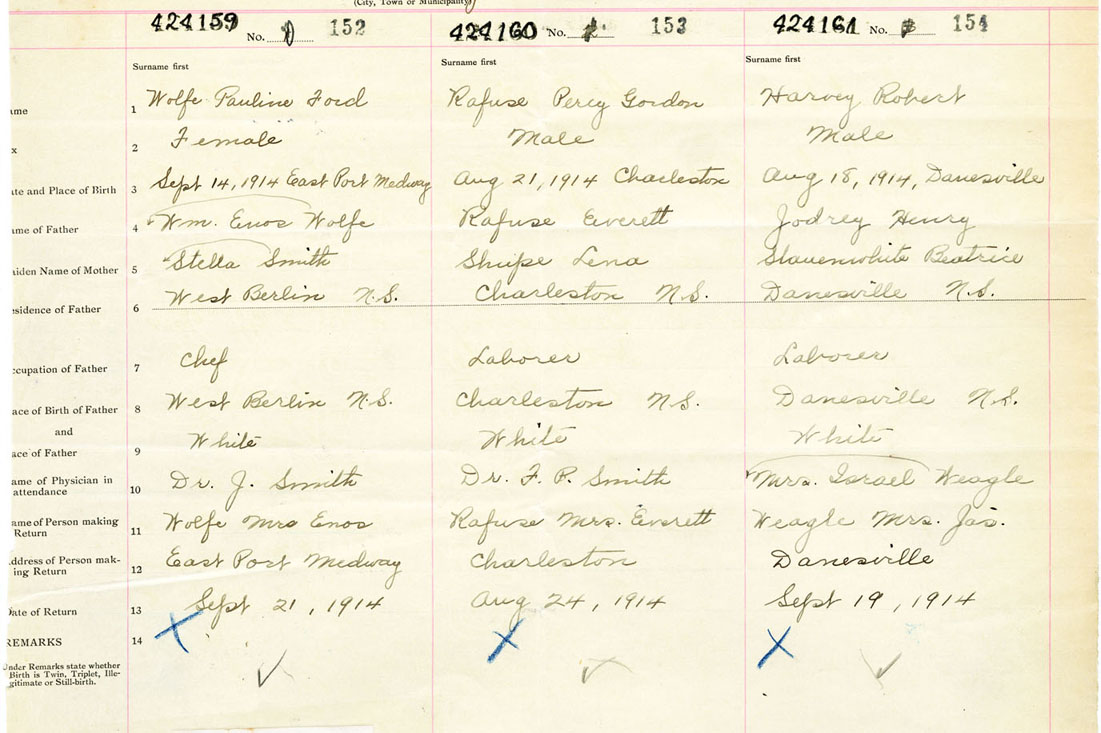 (City, Town or Municipality)
424159 No. 152 424160 No. 153 424161 No. 154
Surname first Surname first Surname first
ame 1 Wolfe Pauline Ford Rafuse Percy Gordon Harvey Robert
x 2 Female Male Male
ate and Place of Birth 3 Sept 14, 1914 East Port Medway Aug 21, 1914 Charleston Aug 18, 1914, Danesville
ame of Father 4 Wm. Enos Wolfe Rafuse Everett Jodrey Henry
aiden Name of Mother 5 Stella Smith Shupe Lena Slauenwhite Beatrice
esidence of Father 6 West Berlin N.S. Charleston N.S. Danesville N.S.
ccupation of Father 7 Chef Laborer Laborer
ace of Birth of Father 8 West Berlin N.S. Charleston N.S. Danesville N.S.
and
ace of Father 9 White White White
ame of Physician in
attendance 10 Dr. J. Smith Dr. F. P. Smith Mrs. Israel Weagle
ame of Person making
Return 11 Wolfe Mrs Enos Rafuse Mrs. Everett Weagle Mrs. Jas.
ddress of Person mak-
ing Return 12 East Port Medway Charleston Danesville
Date of Return 13 Sept 21, 1914 Aug 24, 1914 Sept 19, 1914
REMARKS 14
Under Remarks state whether
Birth is Twin, Triplet, Ille-
gitimate or Still-birth.